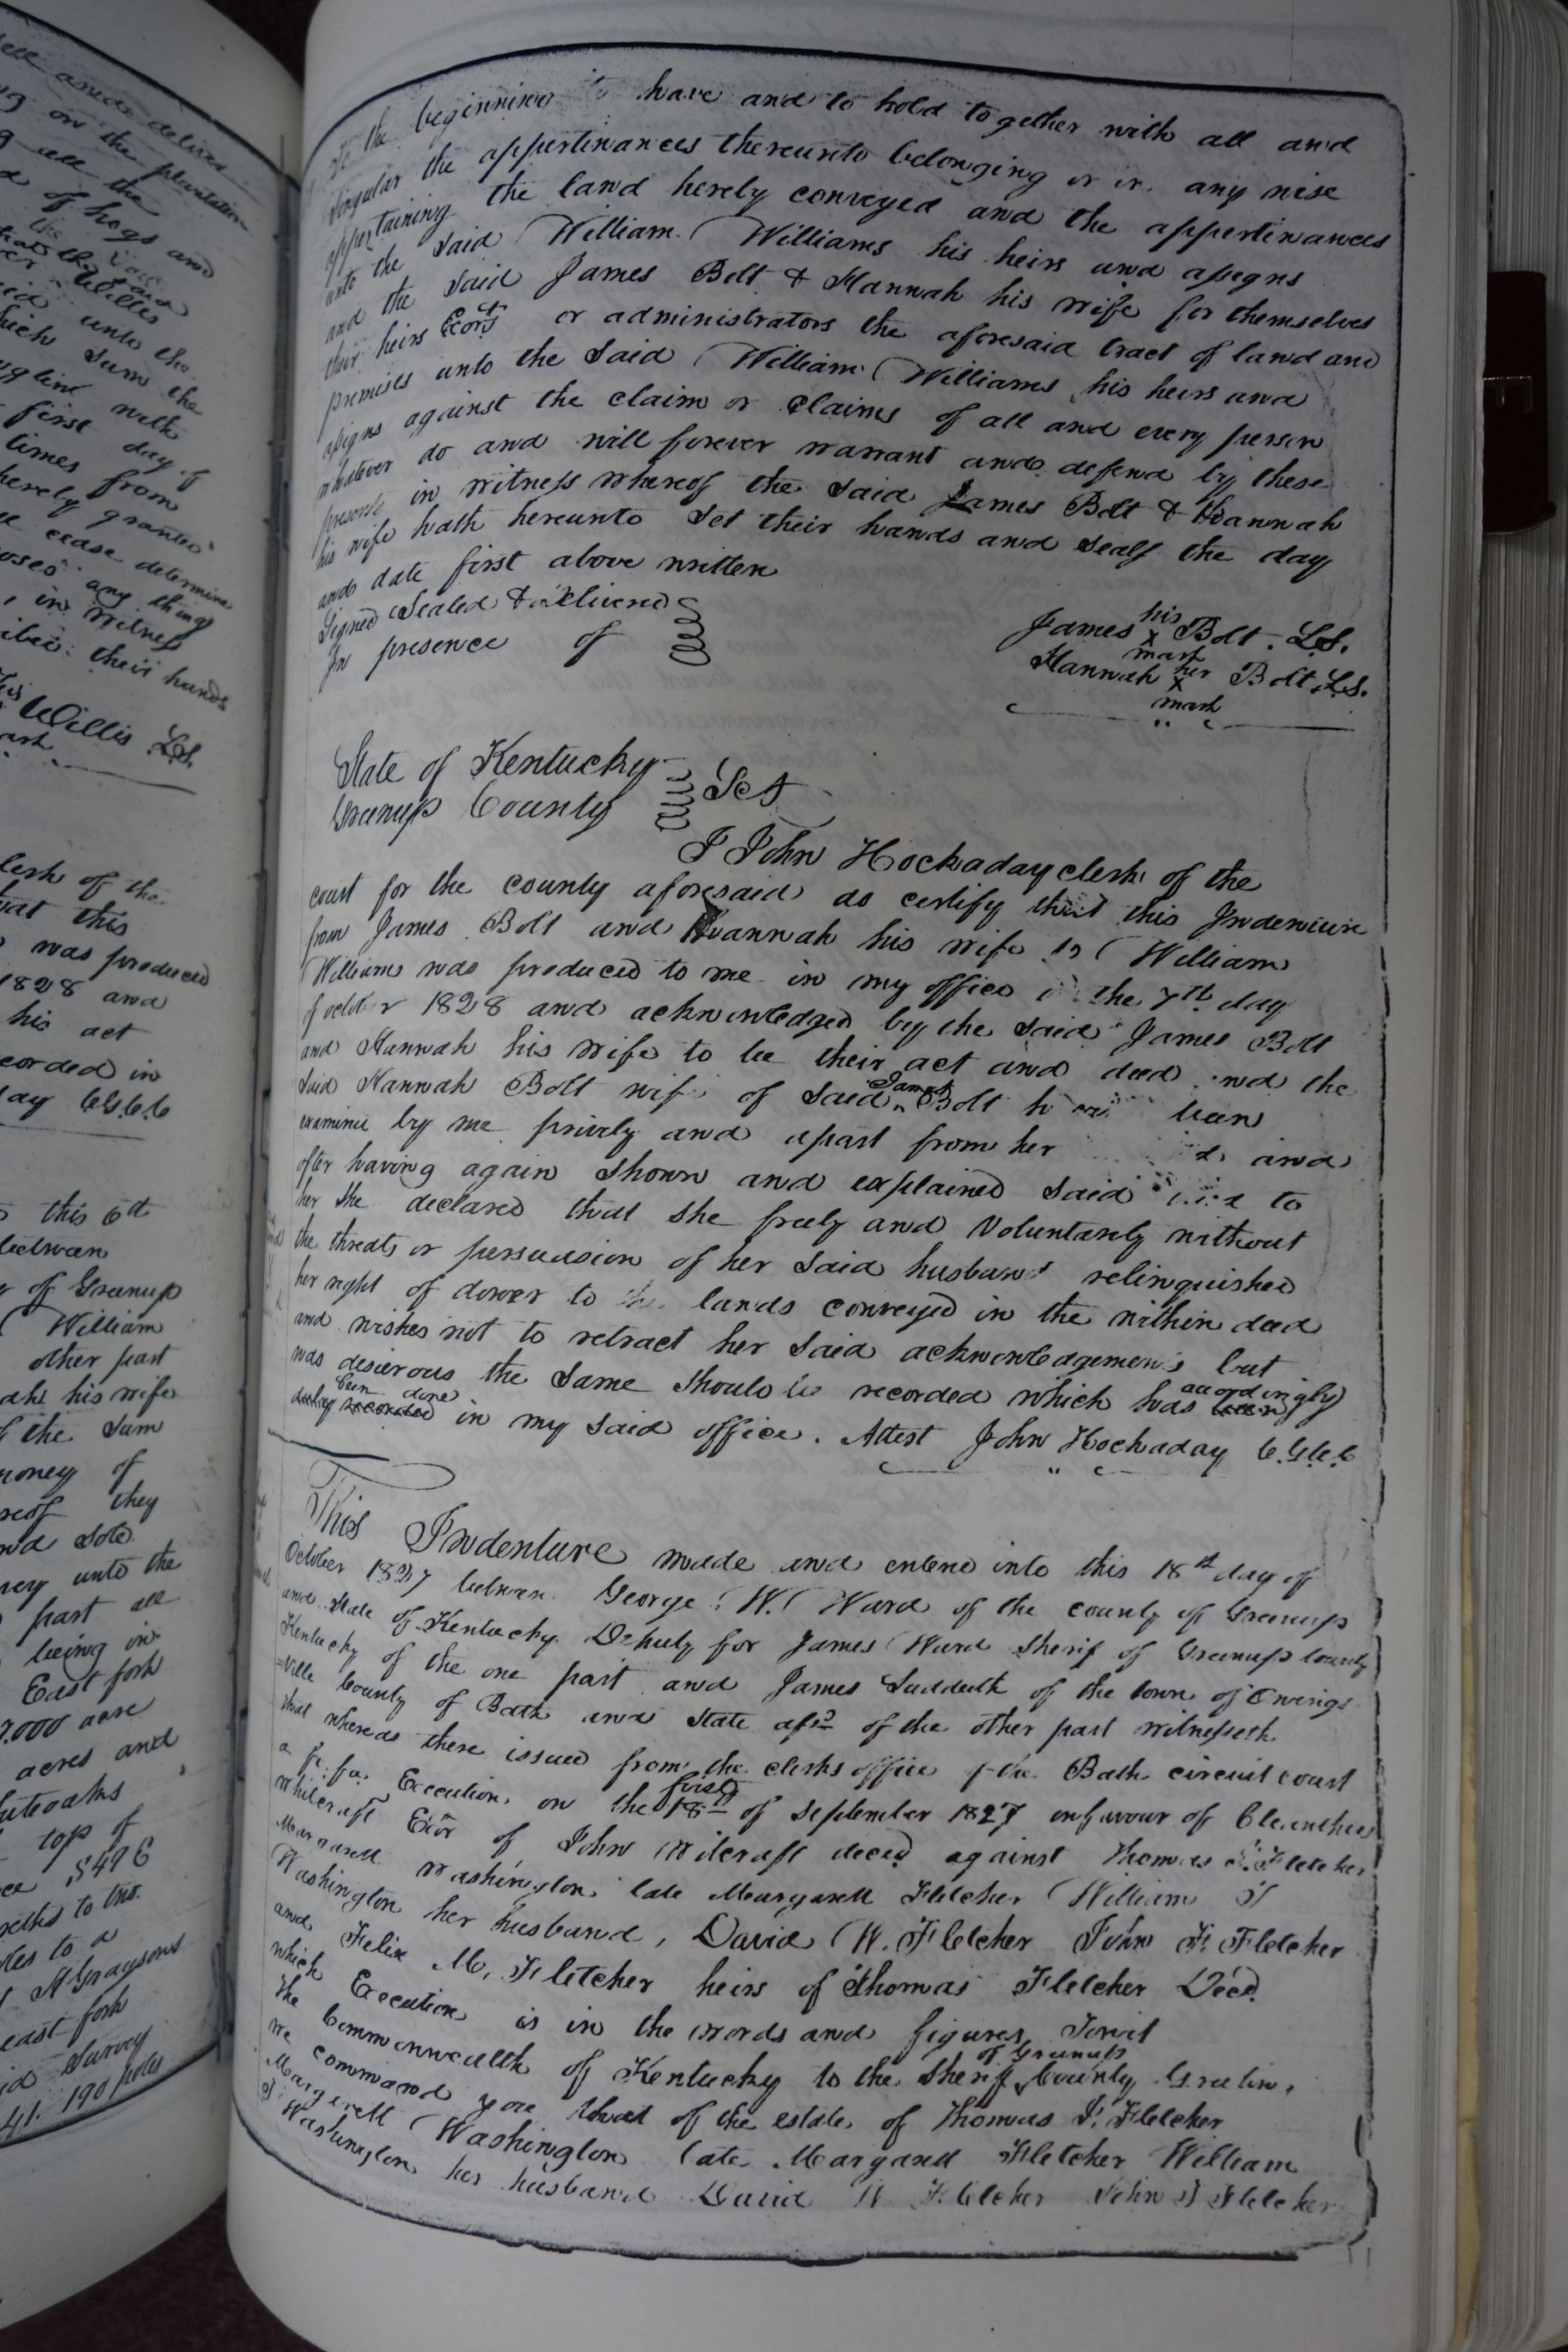 all the
of hogs and
unto the
which Sum the
with
first day of
times from
hereby granted
cease determine
any thing
in witness
their hands
Willis L.S.
clerk of the
that this
was produced
1828 and
his act
recorded in
day C.G.C.C
this 6th
between
of Greenup
William
other part
his wife
the Sum
money of
they
and Sold
unto the
part all
being in
East fork
acre
acres and
top of
S 49 E
to a
east fork
said Survey
41. 190 poles
to the beginning to have and to hold together with all and
singular the appertinances thereunto belonging or in any wise
appertaining the land hereby conveyed and the appertinances
unto the said William Williams his heirs and assigns
and the said James Bolt & Hannah his wife for themselves
their heirs Ecors or administrators the aforesaid tract of land and
premises unto the said William Williams his heirs and
assigns against the claim or claims of all and every person
whatever do and will forever warrant and defend by these
presents in witness whereof the said James Bolt & Hannah
his wife hath hereunto Set their hands and Seals the day
and date first above written
Signed Sealed & delivered
In presence of
James his X mark Bolt L.S.
Hannah her X mark Bolt L.S.
State of Kentucky
Greenup County Sct
I John Hockaday clerk of the
court for the county aforesaid do certify that this Indenture
from James Bolt and Hannah his wife to William
Williams was produced to me in my office on the 7th day
of october 1828 and acknowledged by the said James Bolt
and Hannah his wife to be their act and deed and the
said Hannah Bolt wife of said James Bolt been
examine by me privily and apart from her and
after having again Shown and explained said to
her She declared that She freely and Voluntarily without
the threats or persuasion of her said husband relinquished
her right of dower to the lands conveyed in the within deed
and wishes not to retract her said acknowledgements but
was desierous the Same Should be recorded which has accordingly
been done in my said office. Attest John Hockaday C.G.C.C
This Indenture made and entene into this 18th day of
October 1827 between George W. Ward of the county of Greenup
and State of Kentucky Deputy for James Ward Sherif of Greenup County
Kentucky of the one part and James Suddeth of the town of Owings
=ville County of Bath and State afsd of the other part witnesseth
that whereas there issued from the clerks office of the Bath circuit court
a fi. fa. Execution on the first of September 1827 in favour of Cleanthus
whitcraft Exor of John Witcraft deced against Thomas F. Fletcher
Margarett Washington late Margarett Fletcher William
Washington her husband, David W. Fletcher John F. Fletcher
and Felix M. Fletcher heirs of Thomas Fletcher Deced
which Execution is in the words and figures Towit
The Commonwealth of Kentucky to the Sherif of Greenup County Greetin.
we command you that of the estate of Thomas F. Fletcher
Margarett Washington late Margarett Fletcher William
Washington her husband David W Fletcher John F Fletcher